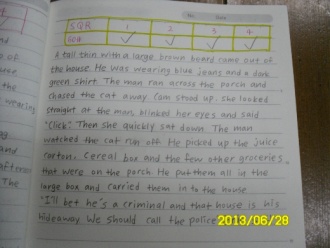 No. Date
S.Q.R 1 2 3 4
A tall thin with a large brown board came out of
the house. He was wearing blue jeans and a dark
green shirt. The man ran across the porch and
chased the cat away. Cam stood up. she looked
straight at the man, blinked her eyes and said
"Click". Then she quickly sat down. The man
watched the cat run off. He picked up the juice
carton, cereal box and the few other groceries
that were on the porch. He put them all in the
large box and carried them in to the house
"I'll bet he's a criminal and that house is his
hideaway. We should call the police
2013/06/28